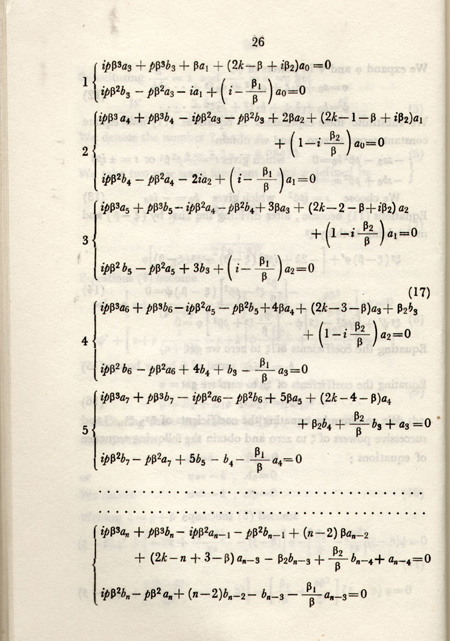 26
1 { ipβ³a₃ + pβ³b₃ + βa₁ + (2k−β + iβ₂)a₀ =0
ipβ²b₃ − pβ²a₃ − ia₁ + (i − β₁/β) a₀=0
2 { ipβ³a₄ + pβ³b₄ − ipβ²a₃ − pβ²b₃ + 2βa₂ + (2k−1−β + iβ₂)a₁
+ (1−i β₂/β) a₀=0
ipβ²b₄ − pβ²a₄ − 2ia₂ + (i − β₁/β) a₁=0
3 { ipβ³a₅ + pβ³b₅ − ipβ²a₄ − pβ²b₄ + 3βa₃ + (2k−2−β+iβ₂) a₂
+ (1−i β₂/β) a₁=0
ipβ²b₅ − pβ²a₅ + 3b₃ + (i − β₁/β) a₂=0
(17)
4 { ipβ³a₆ + pβ³b₆ − ipβ²a₅ − pβ²b₅ + 4βa₄ + (2k−3−β)a₃ + β₂b₃
+ (1−i β₂/β) a₂=0
ipβ²b₆ − pβ²a₆ + 4b₄ + b₃ − β₁/β a₃=0
5 { ipβ³a₇ + pβ³b₇ − ipβ²a₆ − pβ²b₆ + 5βa₅ + (2k−4−β)a₄
+ β₂b₄ + β₂/β b₃ + a₃ =0
ipβ²b₇ − pβ²a₇ + 5b₅ − b₄ − β₁/β a₄=0
. . . . . . . . . . . . . . . . . . . . . . . . . . . . . .
. . . . . . . . . . . . . . . . . . . . . . . . . . . . . .
{ ipβ³aₙ + pβ³bₙ − ipβ²aₙ₋₁ − pβ²bₙ₋₁ + (n−2) βaₙ₋₂
+ (2k−n+3−β) aₙ₋₃ − β₂bₙ₋₃ + β₂/β bₙ₋₄ + aₙ₋₄=0
ipβ²bₙ − pβ²aₙ + (n−2)bₙ₋₂ − bₙ₋₃ − β₁/β aₙ₋₃=0